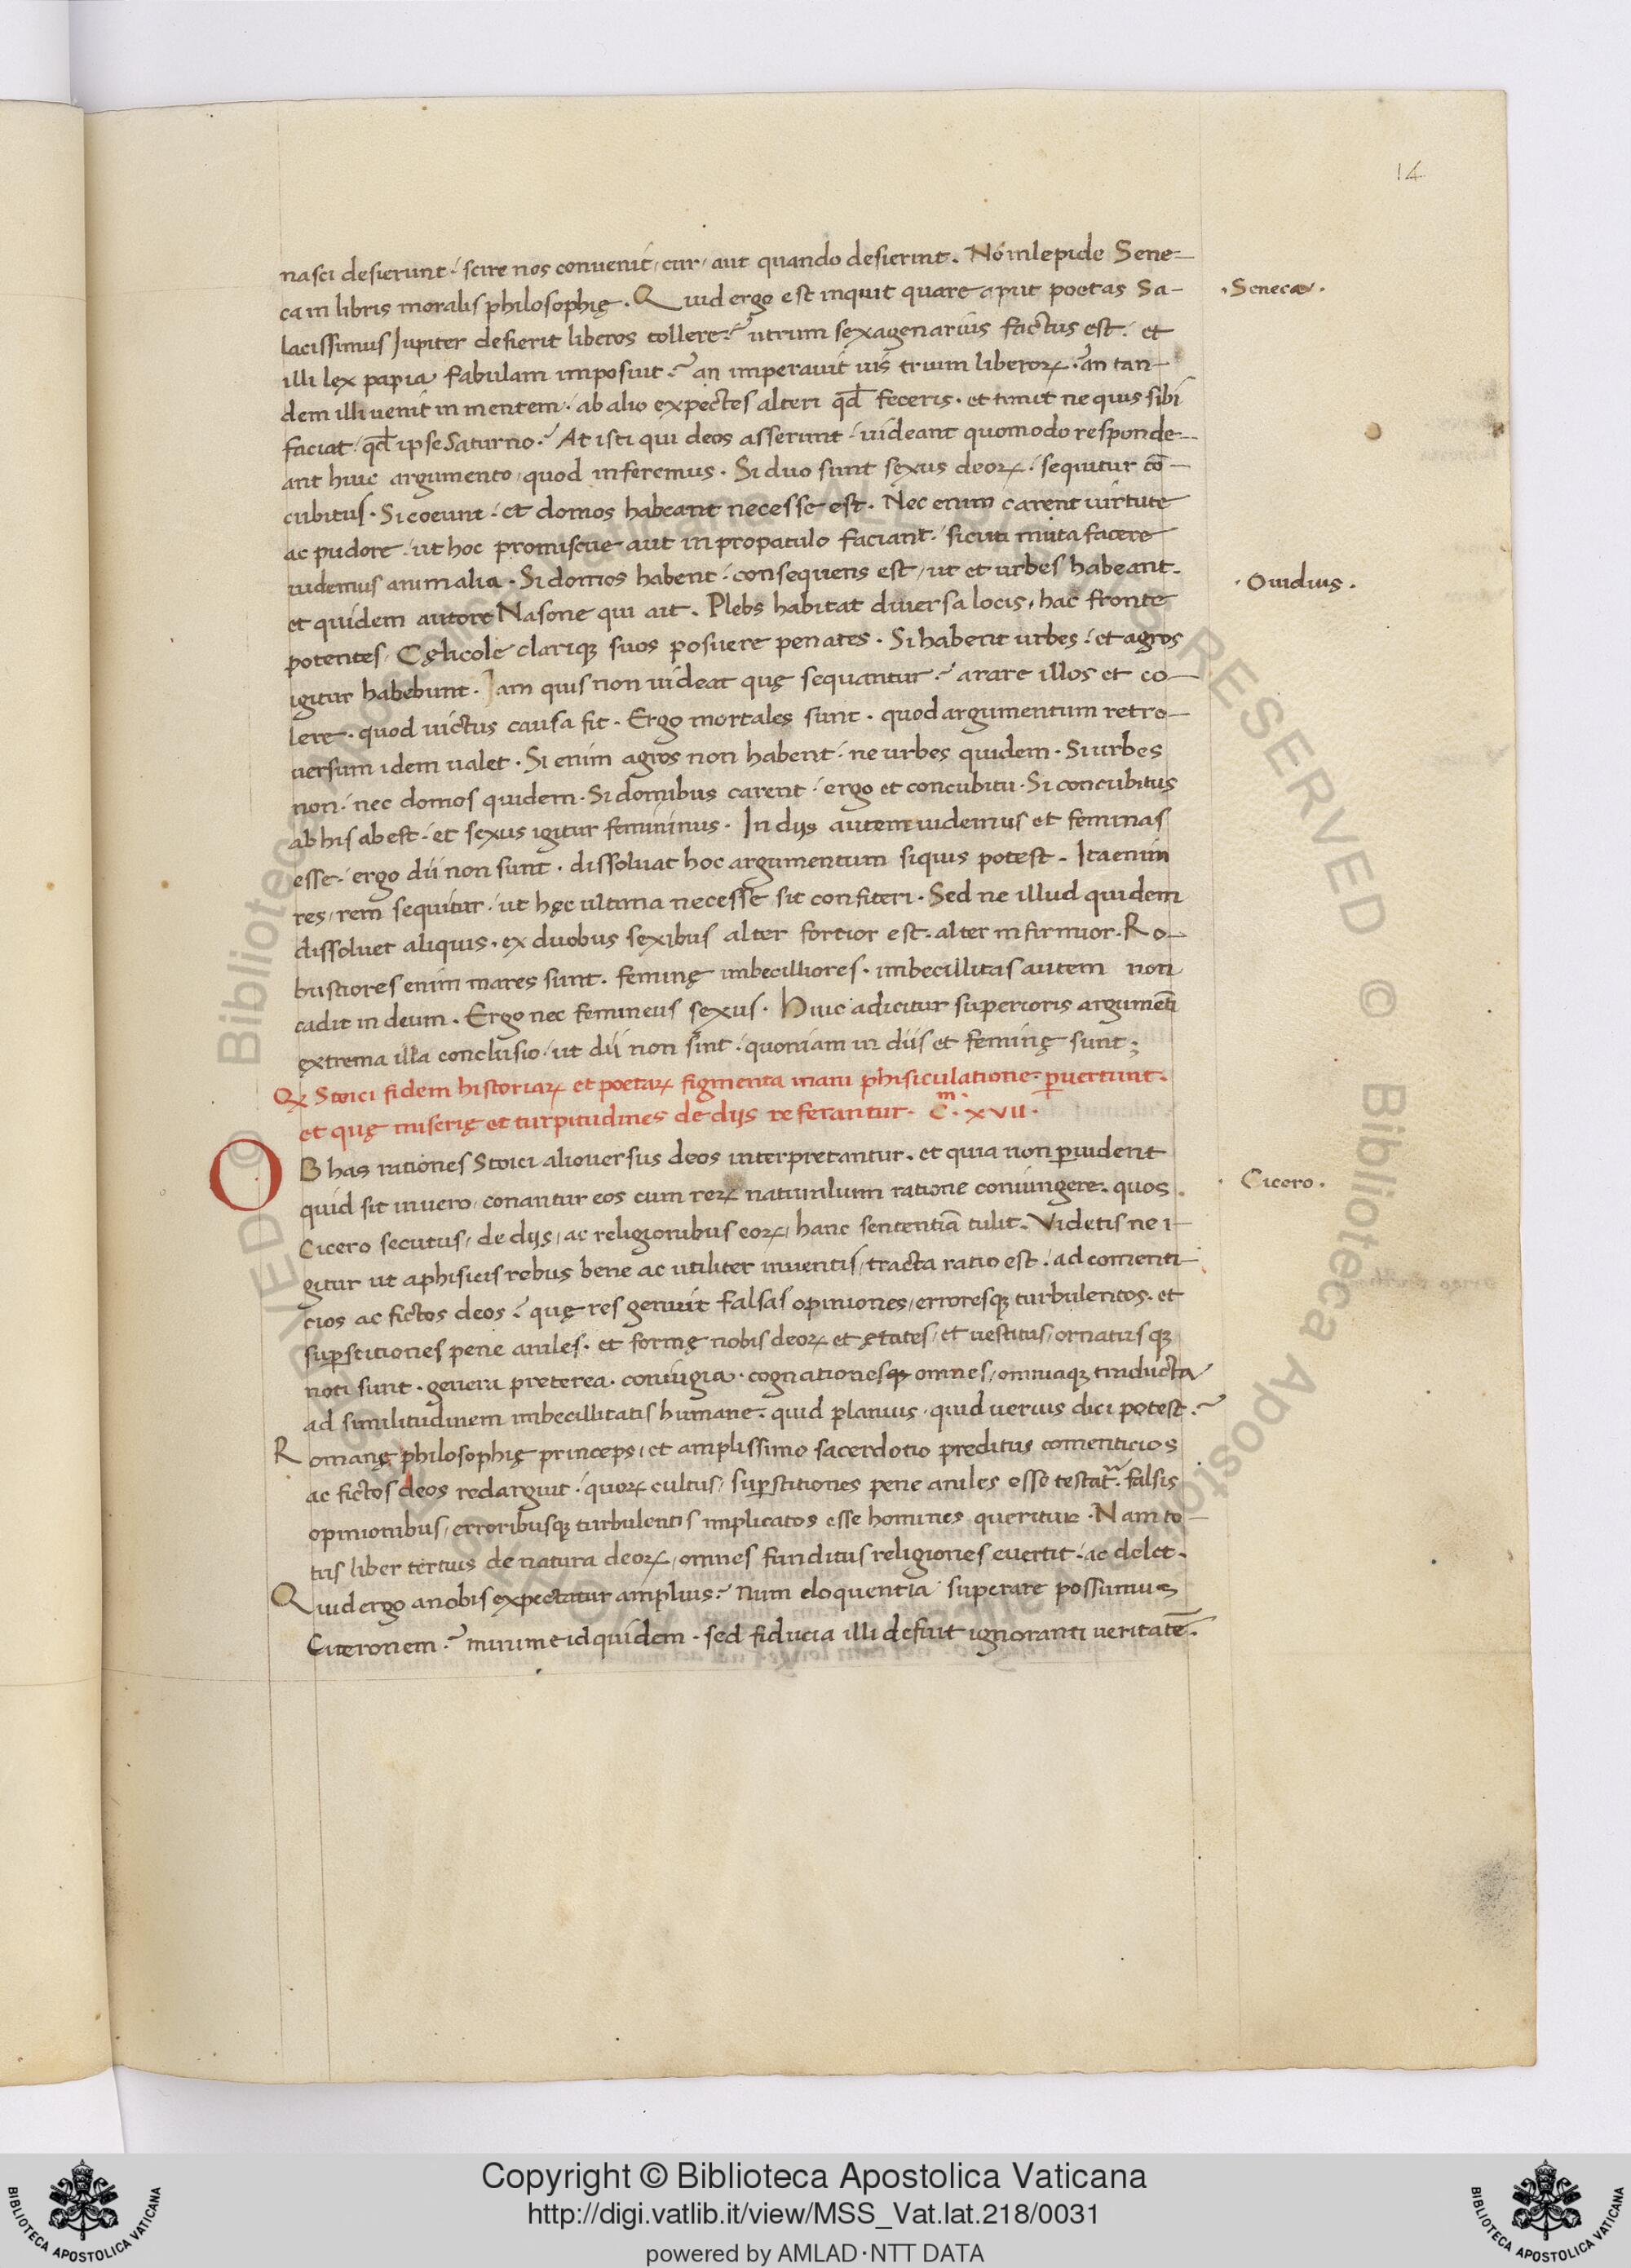 14
nasci desierunt· scire nos conuenit, cur, aut quando desierint. Nō inlepide Sene-
ca in libris moralis philosophię. Quid ergo est inquit quare aput poetas Sa-
·Seneca·
lacissimus Jupiter desierit liberos tollere? utrum sexagenarius factus est· et
illi lex papia fabulam imposuit? an imperauit uis trium liberoꝝ· an tan-
dem illi uenit in mentem· ab alio expectes alteri qđ feceris· et timit ne quis sibi
faciat· qđ ipse Saturno? At isti qui deos asserunt· uideant quomodo responde-
ant huic argumento, quod inferemus. Si duo sunt sexus deoꝝ· sequitur cō-
cubitus. Si coeunt· et domos habeant necesse est. Nec enim carent uirtute
ac pudore· ut hoc promiscue aut in propatulo faciant· sicuti muta facere
uidemus animalia. Si domos habent· consequens est, ut et urbes habeant.
·Ouidius·
et quidem autore Nasone qui ait. Plebs habitat diuersa locis, hac fronte
potentes, Cęlicole clarique suos posuere penates. Si habent urbes· et agros
igitur habebunt. Jam quis non uideat quę sequantur? arare illos et co-
lere· quod uictus causa fit. Ergo mortales sunt. quod argumentum retro-
uersum idem ualet. Si enim agros non habent· ne urbes quidem. Si urbes
non· nec domos quidem. Si domibus carent· ergo et concubitu. Si concubitus
ab his abest· et sexus igitur femininus. In dijs autem uidemus et feminas
esse· ergo dii non sunt. dissoluat hoc argumentum siquis potest. Ita enim
res, rem sequitur· ut hęc ultima necesse sit confiteri. Sed ne illud quidem
dissoluet aliquis. ex duobus sexibus alter fortior est. alter infirmior. Ro-
bustiores enim mares sunt. feminę imbecilliores. imbecillitas autem non
cadit in deum. Ergo nec femineus sexus. Huic adicitur superioris argumēti
extrema illa conclusio· ut dii non sint· quoniam in diis et feminę sunt;
Qꝫ Stoici fidem historiaꝝ et poetaꝝ figmenta inani phisiculatione ꝑuertunt.
et quę miserię et turpitudines de dijs referantur. Cᵐ. xvii.
OB has rationes Stoici aliouersus deos interpretantur. et quia non ꝑuident
quid sit in uero, conantur eos cum reꝝ naturalium ratione coniungere. quos
·Cicero·
Cicero secutus, de dijs, ac religionibus eoꝝ, hanc sententiā tulit. Videtis ne i-
gitur ut a phisicis rebus bene ac utiliter inuentis, tracta ratio est· ad comenti-
cios ac fictos deos? quę res genuit falsas opiniones, erroresqꝫ turbulentos. et
suꝑstitiones pene aniles. et formę nobis deoꝝ et ętates, et uestitus, ornatusqꝫ
noti sunt. genera preterea. coniugia. cognationesqꝫ omnes, omniaqꝫ traducta
ad similitudinem imbecillitatis humane. quid planius. quid uerius dici potest?
Romanę philosophię princeps, et amplissimo sacerdotio preditus comenticios
ac fictos deos redarguit· quoꝝ cultus, suꝑstitiones pene aniles esse testat᷑. falsis
opinionibus, erroribusqꝫ turbulentis implicatos esse homines queritur. Nam to-
tus liber tertius de natura deoꝝ, omnes funditus religiones euertit· ac delet.
Quid ergo a nobis expectatur amplius? Num eloquentia superare possumus
Ciceronem? minime id quidem. sed fiducia illi defuit ignoranti ueritatē.
Copyright © Biblioteca Apostolica Vaticana
http://digi.vatlib.it/view/MSS_Vat.lat.218/0031
powered by AMLAD·NTT DATA
BIBLIOTECA APOSTOLICA VATICANA
BIBLIOTECA APOSTOLICA VATICANA